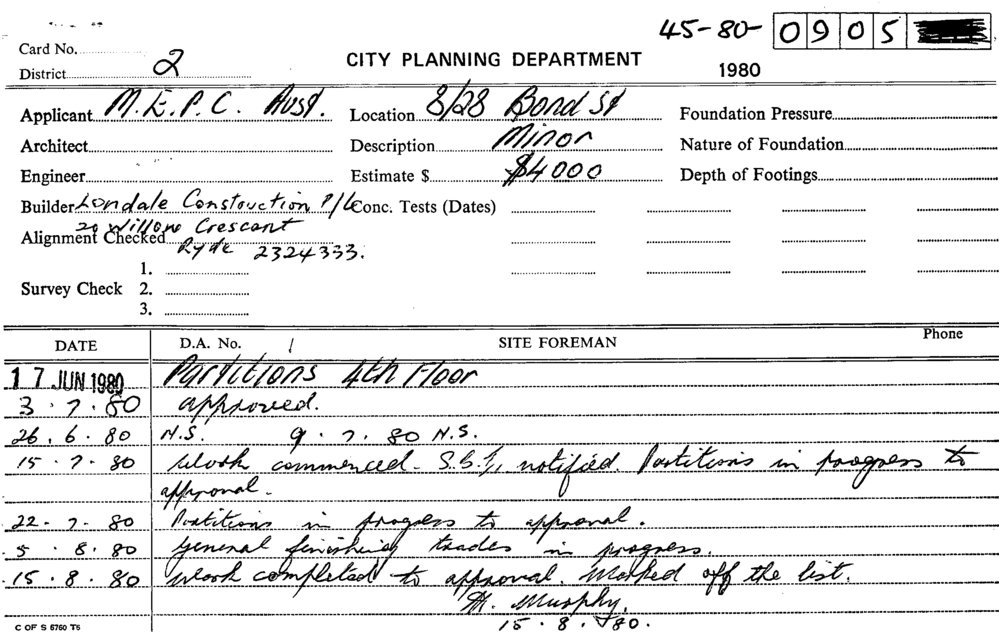 45-80-0905
Card No.
District 2
CITY PLANNING DEPARTMENT
1980
Applicant M.E.P.C. Aust. Location 8/28 Bond St Foundation Pressure
Architect Description Minor Nature of Foundation
Engineer Estimate $ $4000 Depth of Footings
Builder Londale Constouction P/L Conc. Tests (Dates)
20 Willow Crescant
Alignment Checked Ryde 2324333.
1.
Survey Check 2.
3.
DATE D.A. No. SITE FOREMAN Phone
17 JUN 1980 Partitions 4th Floor
3.7.80 approved.
26.6.80 N.S. 9.7.80 N.S.
15.7.80 Work commenced. notified. Partitions in progress to
approval.
22.7.80 Partitions in progress to approval.
5.8.80 General finishing trades in progress.
15.8.80 Work completed to approval. Marked off the list.
M. Murphy.
15.8.80.
C OF S 5760 T6